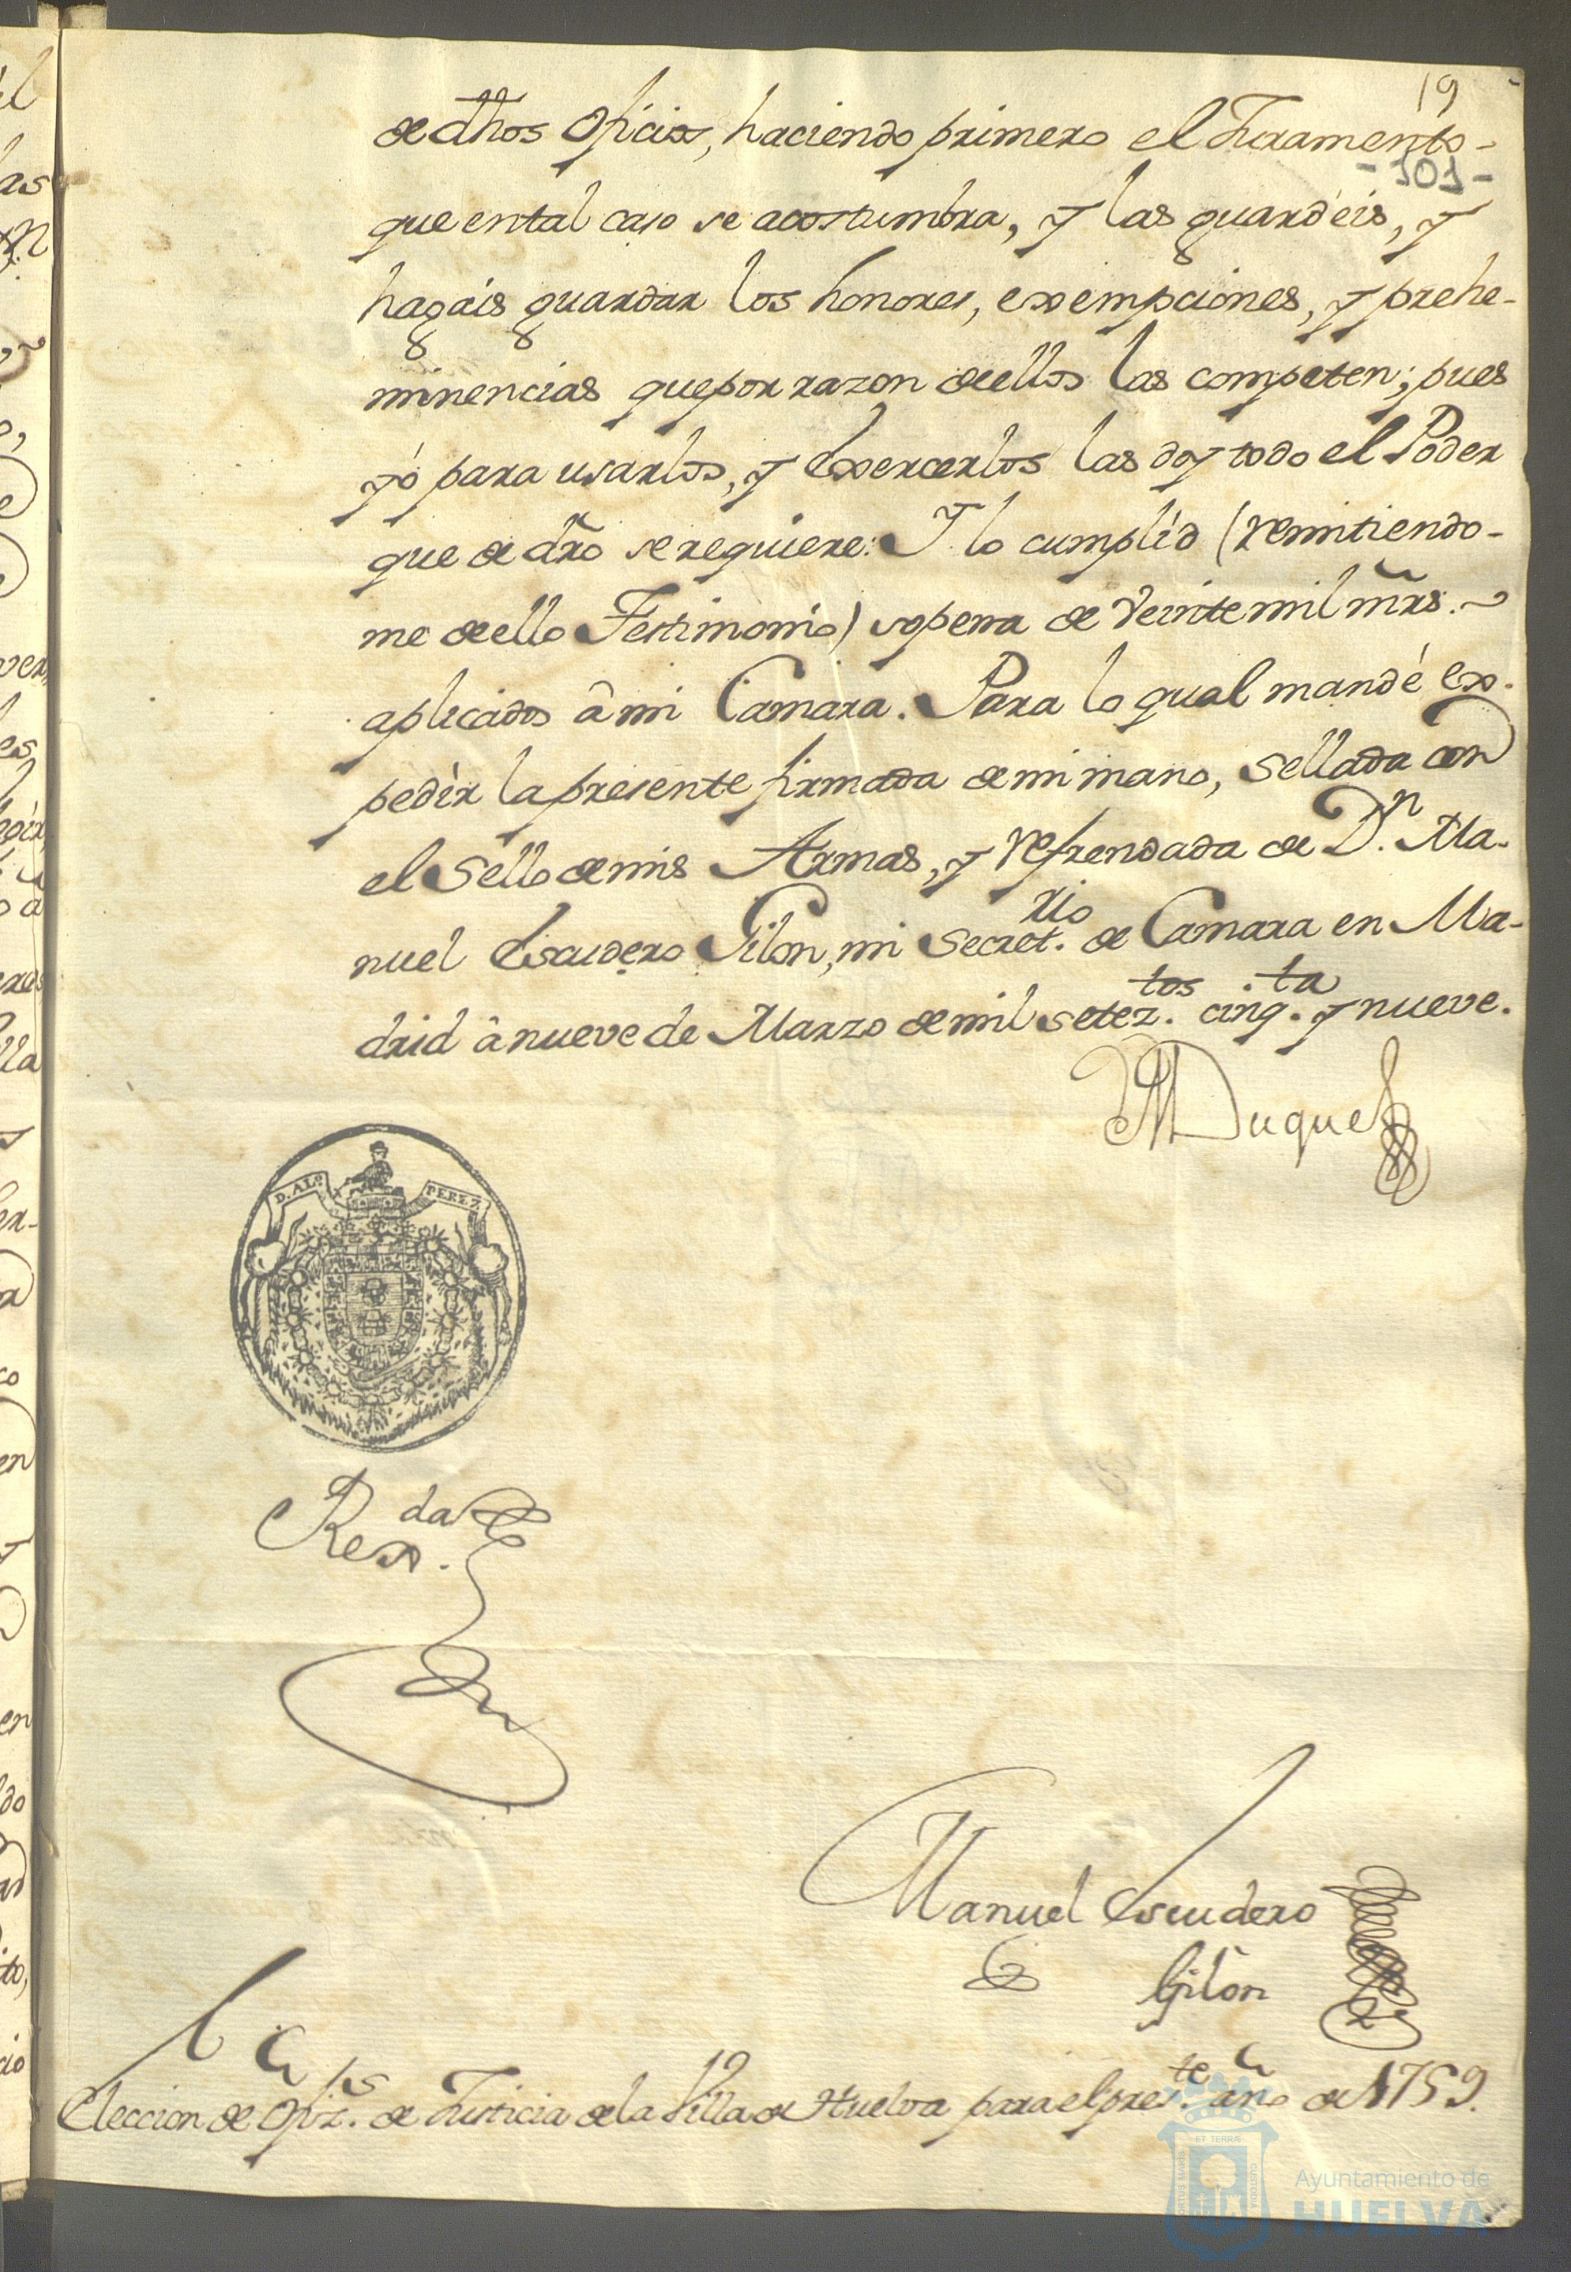 19
de dhos Oficios, haciendo primero el Juramento-
- 101 -
que en tal caso se acostumbra, y las guardéis, y
hagáis guardar los honores, exempciones, y prehe-
minencias que por razon de ellos las competen; pues
yó para usarlos, y Exercerlos las doy todo el Poder
que de dro se requiere: Y lo cumplid (remitiendo-
me de ello Testimonio) so pena de Veinte mil mrs.
aplicados â mi Camara. Para lo qual mandé ex-
pedìr la presente firmada de mi mano, Sellada con
el Sello de mis Armas, y refrendada de Dn. Ma-
nuel Escudero Gilon, mi Secret.rio de Camara en Ma-
drid â nueve de Marzo de mil setez.tos cinq.ta y nueve.
El Duque
D. ALº. PEREZ
Rex.da
Manuel Escudero
Gilòn
Eleccion de Ofiz.ps de Justicia de la Villa de Huelva para el pres.te año de 1759.
ET TERRÆ
CUSTODIA
PORTUS MARIS
Ayuntamiento de
HUELVA